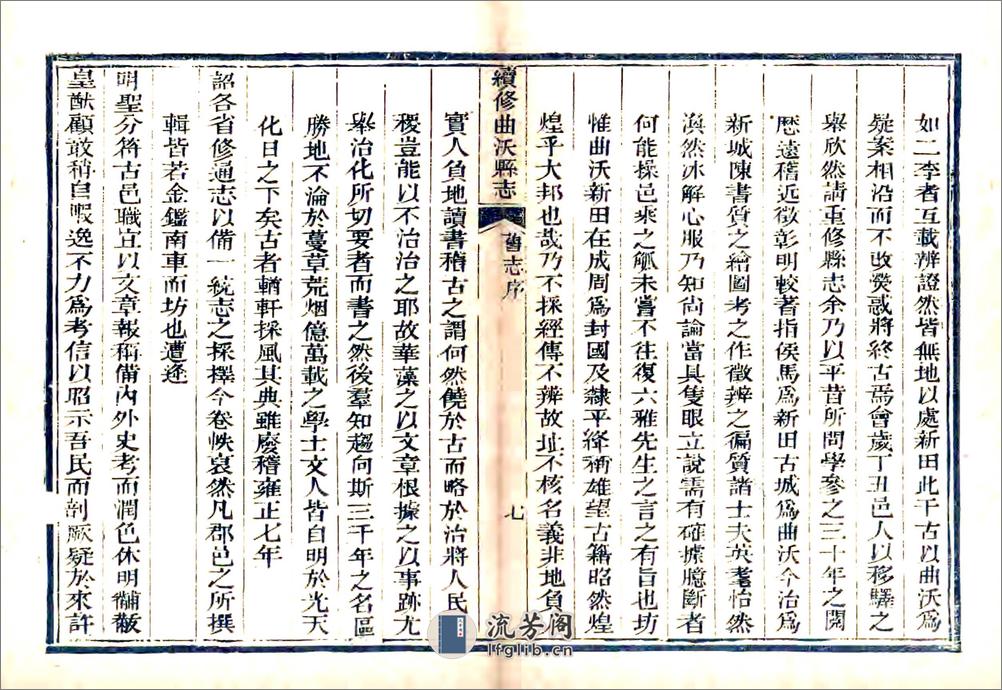 如二李者互載辨證然皆無地以處新田此千古以曲沃爲
疑案相沿而不改熒惑將終古焉會歲丁丑邑人以移驛之
舉欣然請重修縣志余乃以平昔所問學參之三十年之閱
歷遠稽近徵彰明較著指侯馬爲新田古城爲曲沃今治爲
新城陳書質之繪圖考之作徵辨之徧質諸士夫英耆怡然
渙然冰解心服乃知尚論當具隻眼立說需有確據臆斷者
何能操邑乘之觚未嘗不往復六雅先生之言之有旨也坊
惟曲沃新田在成周爲封國及隸平絳稱雄望古籍昭然煌
煌乎大邦也哉乃不採經傳不辨故址不核名義非地負
續修曲沃縣志
舊志序
七
實人負地讀書稽古之謂何然饒於古而略於治將人民
稷豈能以不治治之耶故華藻之以文章根據之以事跡尤
舉治化所切要者而書之然後羣知趨向斯三千年之名區
勝地不淪於蔓草荒烟億萬載之學士文人皆自明於光天
化日之下矣古者輶軒採風其典雖廢稽雍正七年
詔各省修通志以備一統志之採擇今卷帙裒然凡郡邑之所撰
輯皆若金鑑南車而坊也遭逢
明聖分符古邑職宜以文章報稱備內外史考而潤色休明黼黻
皇猷顧敢稍自暇逸不力爲考信以昭示吾民而剖厥疑於來許
流芳閣
lfglib.cn